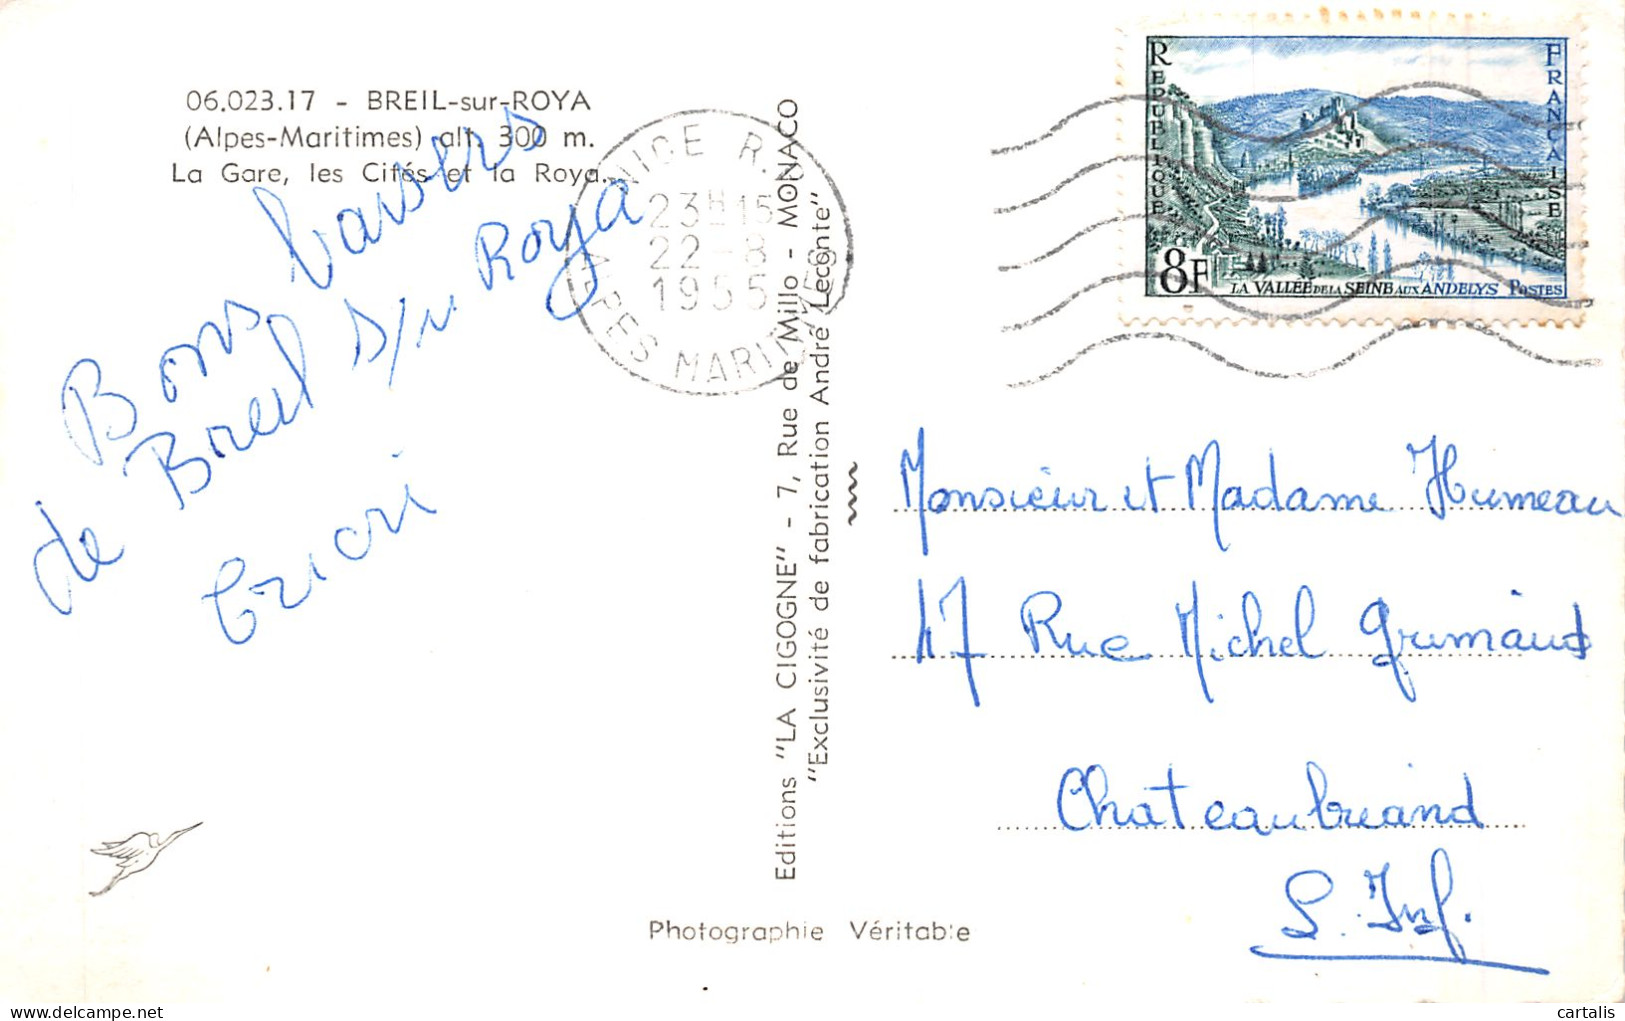 06.023.17 - BREIL-sur-ROYA
(Alpes-Maritimes) alt. 300 m.
La Gare, les Cités et la Roya.
Bons baisers
de Breil s/r Roya
NICE R.P.
23H15
22-8
1955
ALPES MARITIMES
Editions "LA CIGOGNE" - 7, Rue de Millo - MONACO
"Exclusivité de fabrication André Leconte"
REPUBLIQUE FRANCAISE
8F
LA VALLÉE DE LA SEINE AUX ANDELYS POSTES
Monsieur et Madame Humeau
47 Rue Michel Grimaud
Chateaubriand
L. Inf.
Photographie Véritable
cartalis